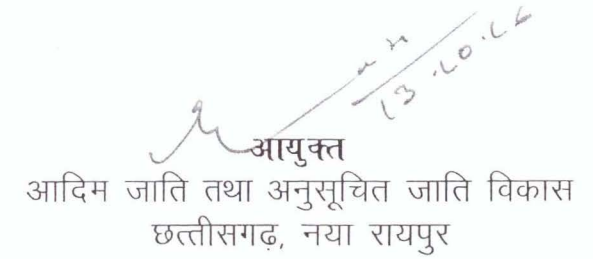 13.10.16
आयुक्त
आदिम जाति तथा अनुसूचित जाति विकास
छत्तीसगढ़, नया रायपुर